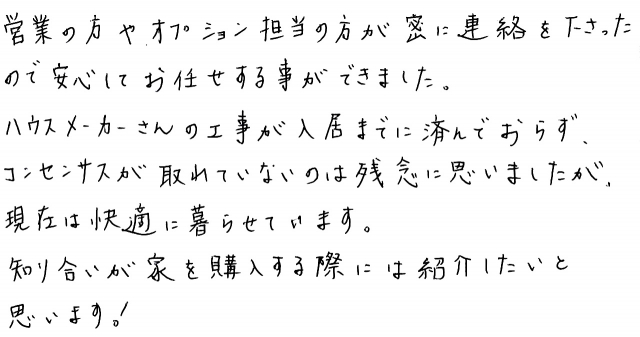 営業の方やオプション担当の方が密に連絡を下さった
ので安心してお任せする事ができました。
ハウスメーカーさんの工事が入居までに済んでおらず、
コンセンサスが取れていないのは残念に思いましたが、
現在は快適に暮らせています。
知り合いが家を購入する際には紹介したいと
思います!